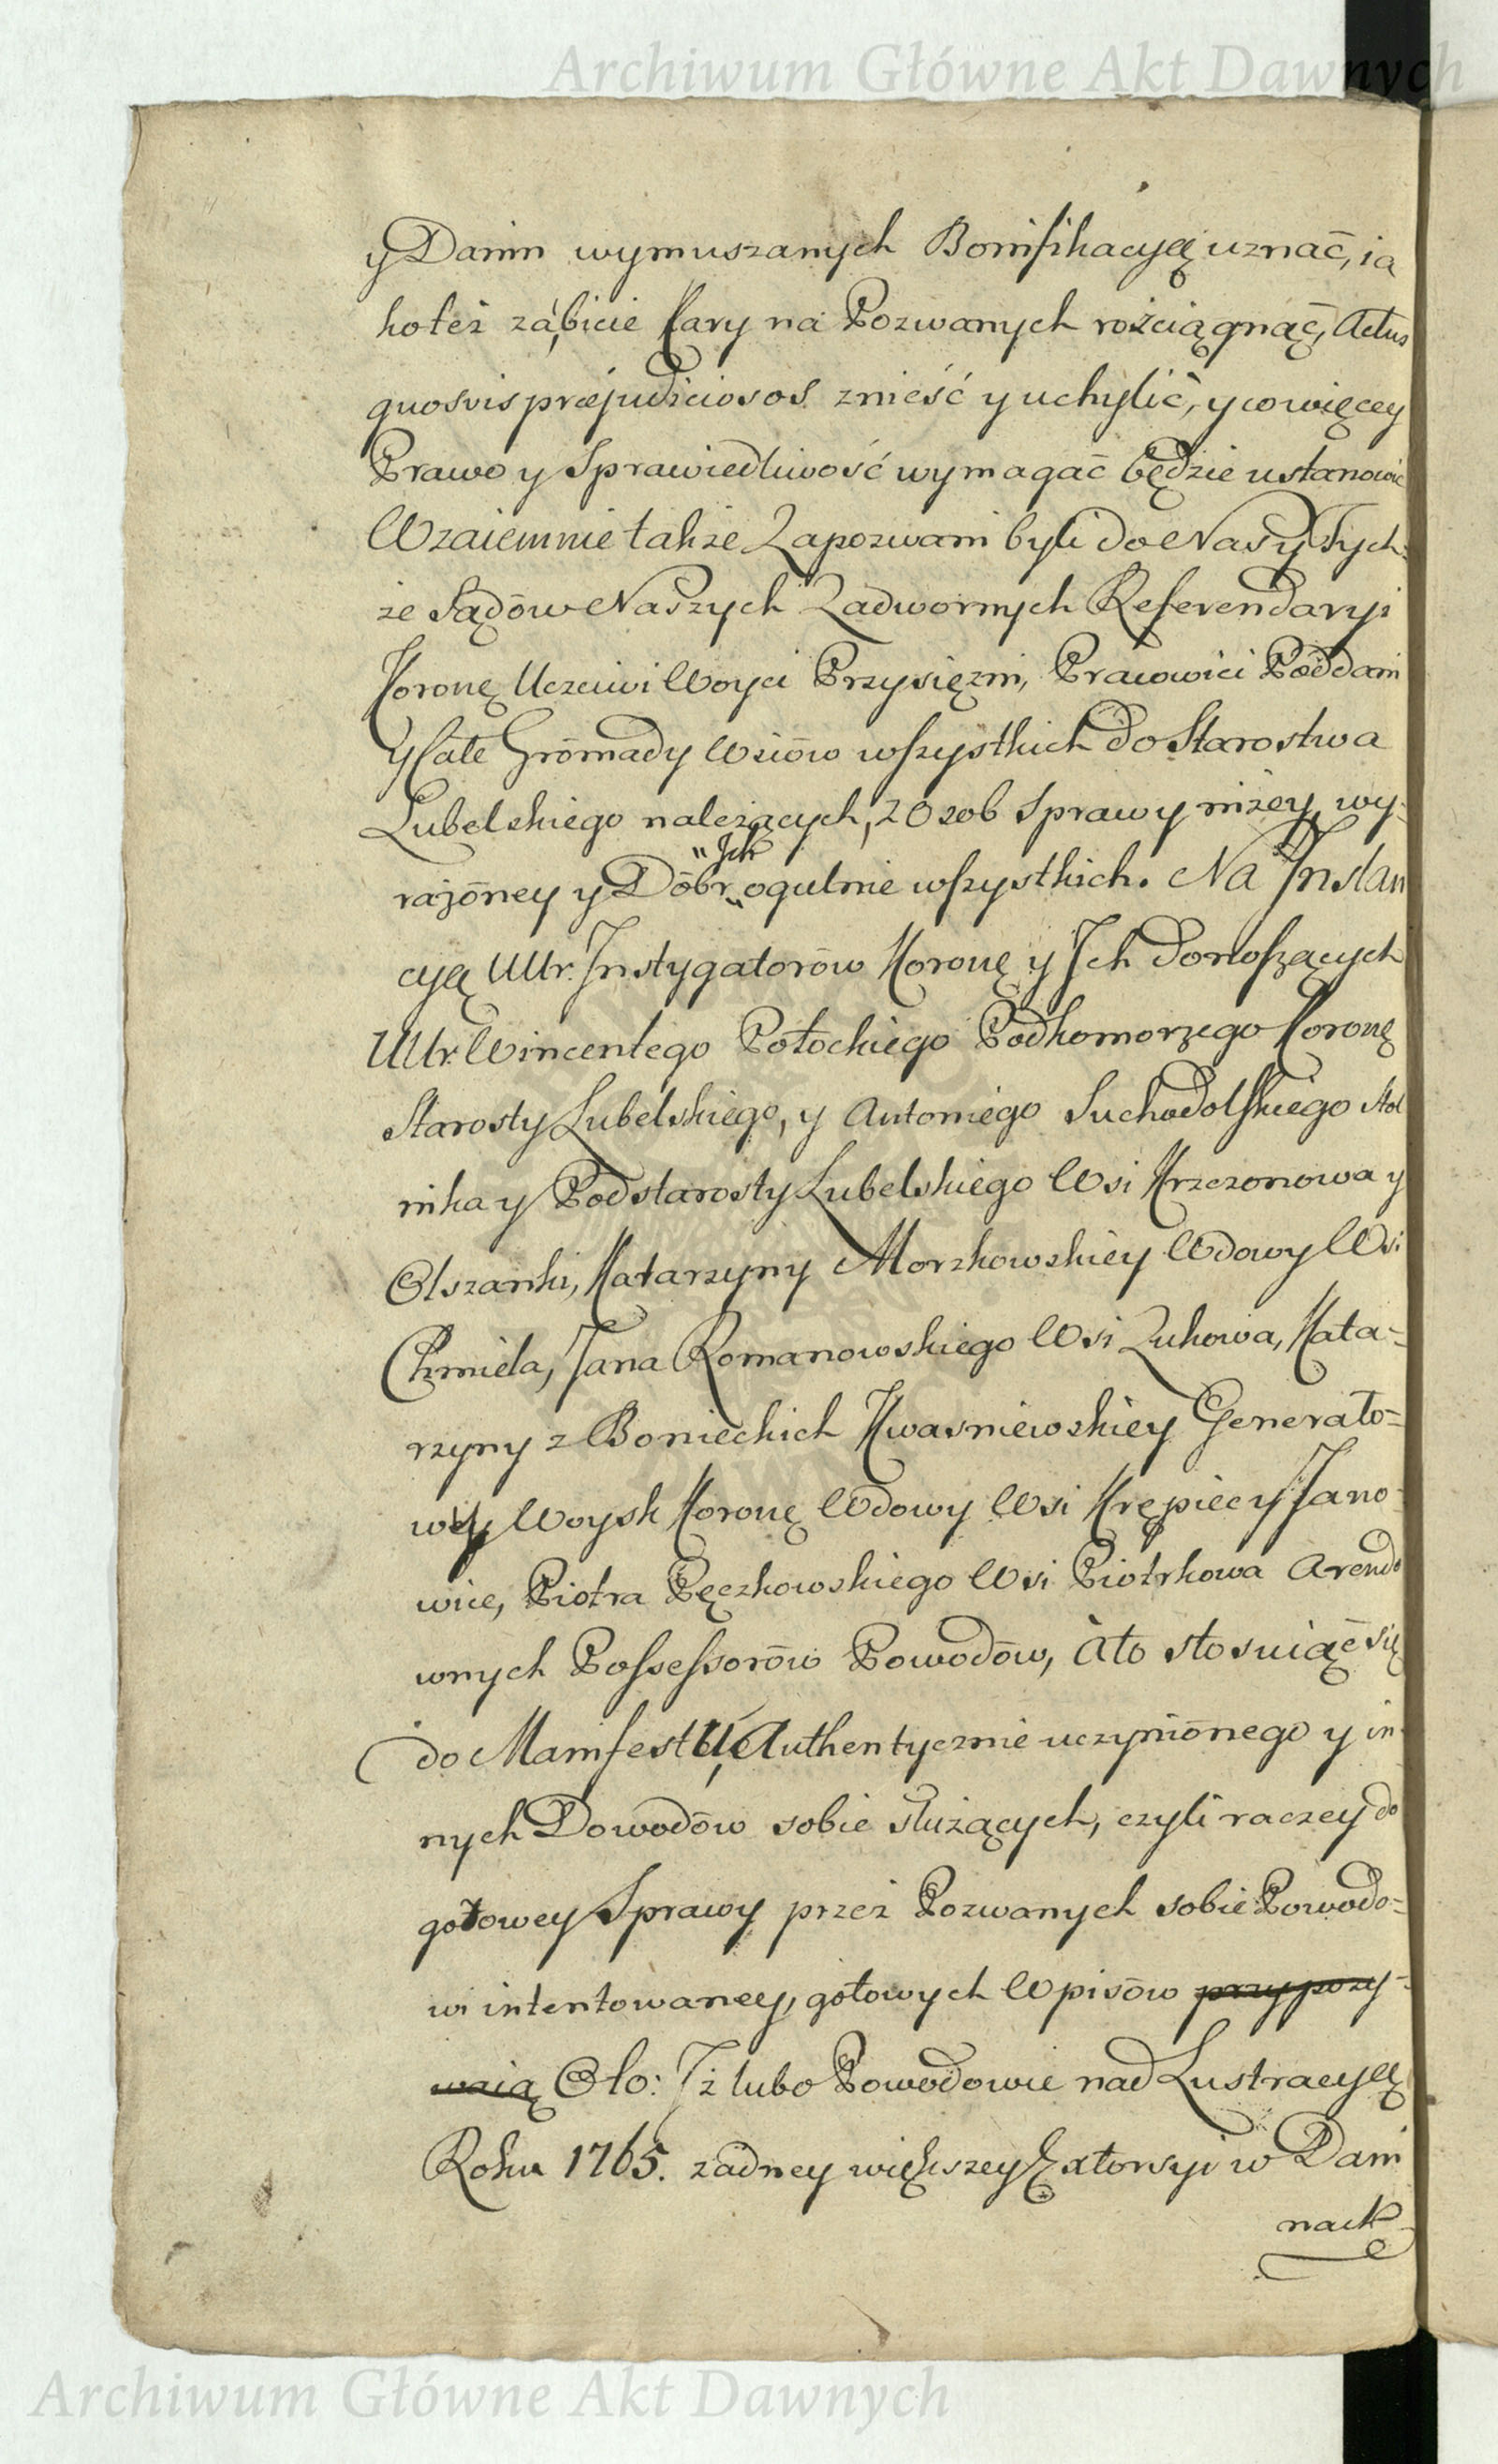 Archiwum Główne Akt Dawnych
y Danin wymuszanych Bonifikacyą uznać, ia
koteż zábicie Kary na Pozwanych rożciągnąć, Actus
quosvis præjudiciosos znieść y uchylić, y co więcey
Prawo y Sprawiedliwość wymagać będzie ustanowić
Wzaiemnie także Zapozwani byli do Nas y Tych:
że Sądów Naszych Zadwornych Referendaryi
Koronę Uczciwi Woyci Przysięzni, Pracowici Poddani
y Całe Grómady Wsiów wszystkich do Starostwa
Lubelskiego należących, z Osob Sprawy niżey wy-
"Ich
rażóney y Dóbr „ ogulnie wszystkich. Na Instan
cyą Ur. Instygatorów Koronę y Ich Donoszących
Ur. Wincentego Potockiego Podkomorzego Koronę
Starosty Lubelskiego, y Antoniego Suchodolskiego Stol
nika y Podstarosty Lubelskiego Wsi Krzczonowa y
Olszanki, Katarzyny Morzkowskiey Wdowy Wsi
Chmiela, Jana Romanowskiego Wsi Zukowa, Kata=
rzyny z Bonieckich Kwasniewskiey Generało=
wey Woysk Koronę Wdowy Wsi Krępiec y Jano-
wice, Piotra Pęczkowskiego Wsi Piotrkowa Arendo
wnych Possessorów Powodów, Ato stosuiąć się
do Manifestu, Authentycznie uczyniónego y in-
nych Dowodów sobie służących, czyli raczey do
gotowey Sprawy przez Pozwanych sobie Powodo=
wi intentowaney, gotowych Wpisów przypozy=
waią Oto: Iż lubo Powodowie nad Lustracyą
Roku 1765. żadney większey Extorsyi w Dani
nach
Archiwum Główne Akt Dawnych